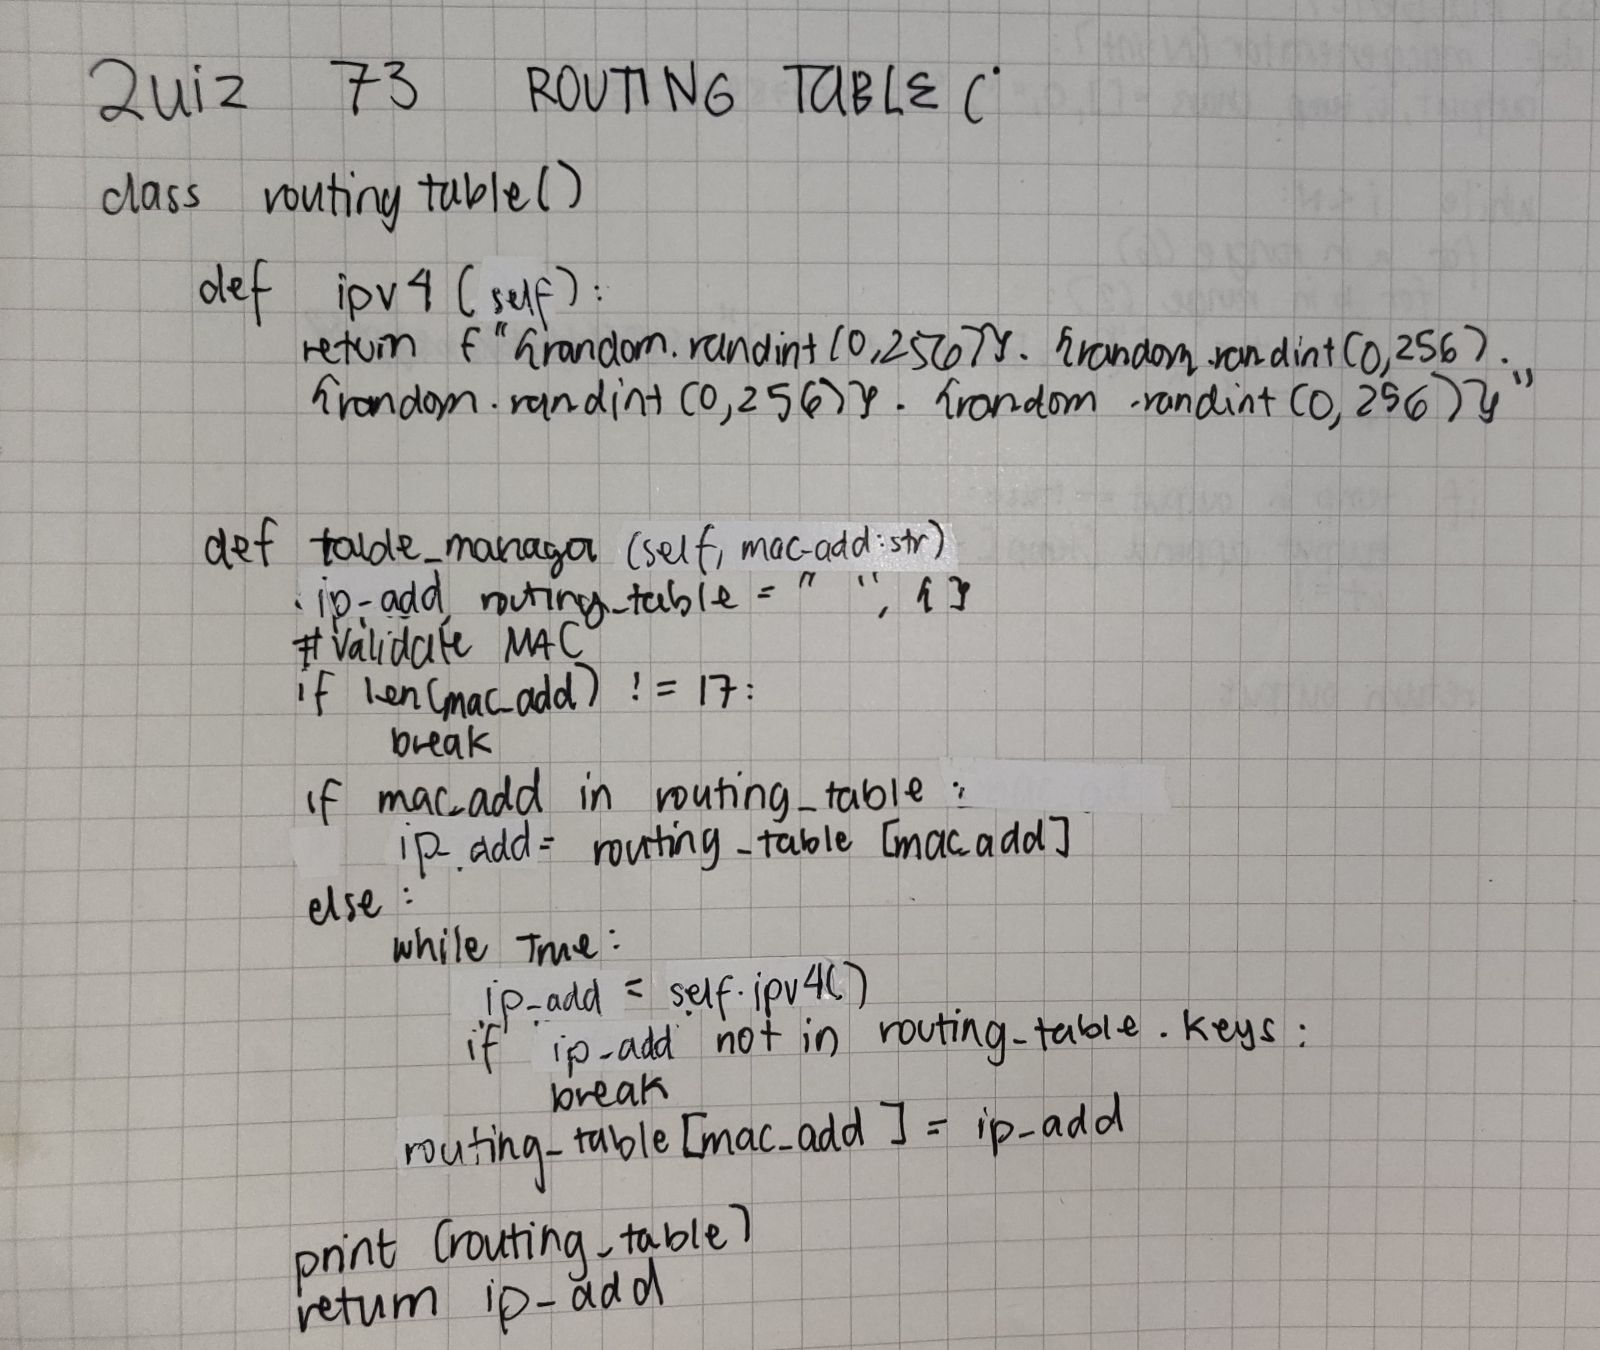 Quiz 73 ROUTING TABLE (
class routing table()
def ipv4 (self):
return f"{random.randint(0,256)}. {random.randint(0,256).
{random.randint(0,256)}. {random.randint(0,256)}"
def table_manager (self, mac_add:str)
ip_add, routing_table = " ", {}
#Validate MAC
if len(mac_add) != 17:
break
if mac_add in routing_table :
ip_add = routing_table [mac_add]
else :
while True:
ip_add = self.ipv4()
if ip_add not in routing_table.keys :
break
routing_table[mac_add] = ip_add
print (routing_table)
return ip_add